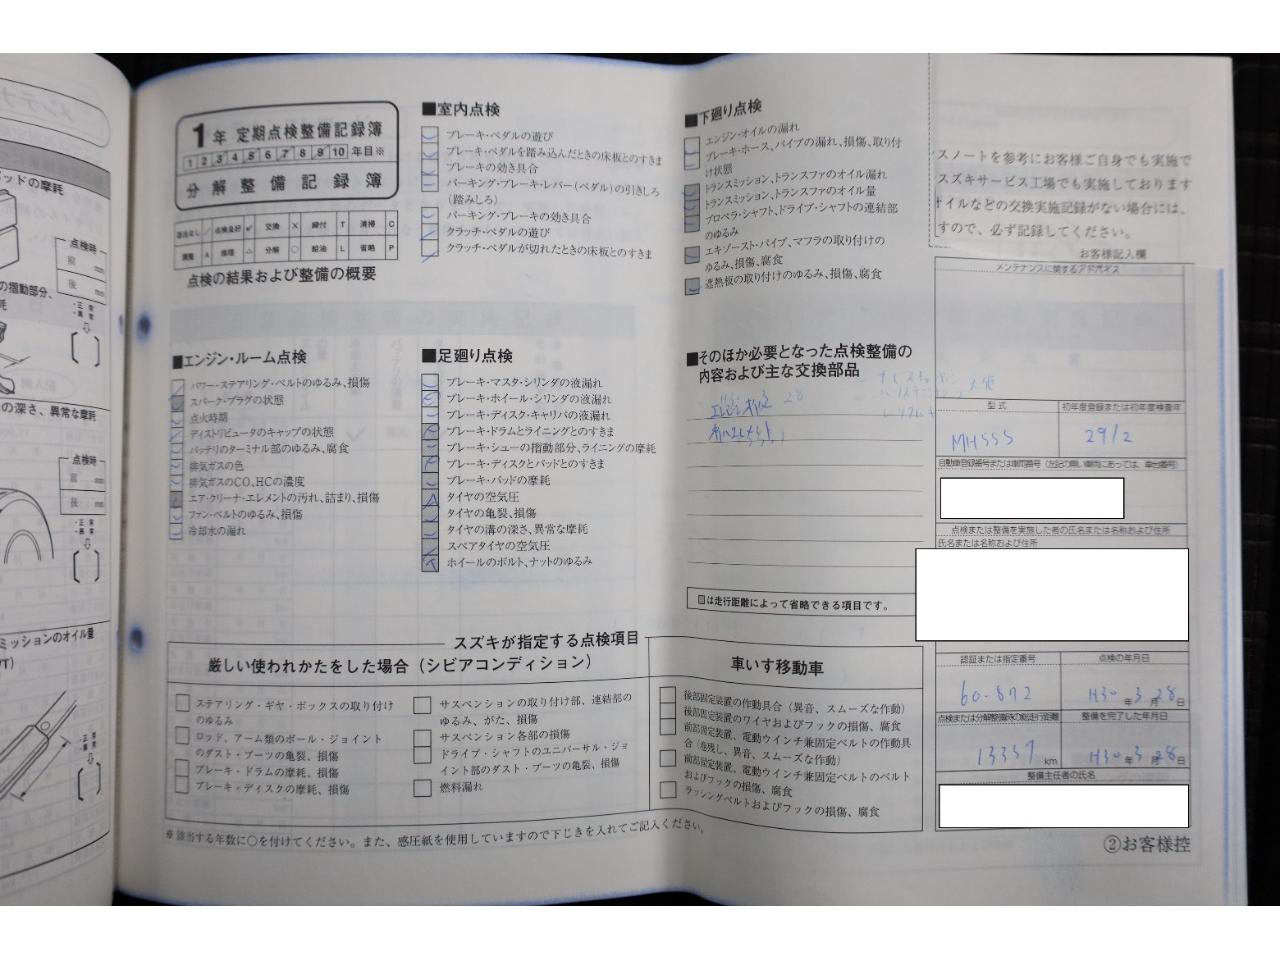 ッドの摩耗
点検時
前 mm
後 mm
の摺動部分、
の深さ、異常な摩耗
点検時
前 mm
後 mm
ミッションのオイル量
1年 定期点検整備記録簿
1 2 3 4 5 6 7 8 9 10 年目※
分解整備記録簿
該当なし / 点検良好 レ 交換 X 締付 T 清掃 C
調整 A 修理 △ 分解 ○ 給油 L 省略 P
点検の結果および整備の概要
■エンジン・ルーム点検
パワー・ステアリング・ベルトのゆるみ、損傷
スパーク・プラグの状態
点火時期
ディストリビュータのキャップの状態
バッテリのターミナル部のゆるみ、腐食
排気ガスの色
排気ガスのCO、HCの濃度
エア・クリーナ・エレメントの汚れ、詰まり、損傷
ファン・ベルトのゆるみ、損傷
冷却水の漏れ
■室内点検
ブレーキ・ペダルの遊び
ブレーキ・ペダルを踏み込んだときの床板とのすきま
ブレーキの効き具合
パーキング・ブレーキ・レバー(ペダル)の引きしろ
(踏みしろ)
パーキング・ブレーキの効き具合
クラッチ・ペダルの遊び
クラッチ・ペダルが切れたときの床板とのすきま
■足廻り点検
ブレーキ・マスタ・シリンダの液漏れ
ブレーキ・ホイール・シリンダの液漏れ
ブレーキ・ディスク・キャリパの液漏れ
ブレーキ・ドラムとライニングとのすきま
ブレーキ・シューの摺動部分、ライニングの摩耗
ブレーキ・ディスクとパッドとのすきま
ブレーキ・パッドの摩耗
タイヤの空気圧
タイヤの亀裂、損傷
タイヤの溝の深さ、異常な摩耗
スペアタイヤの空気圧
ホイールのボルト、ナットのゆるみ
■下廻り点検
エンジン・オイルの漏れ
ブレーキ・ホース、パイプの漏れ、損傷、取り付
け状態
トランスミッション、トランスファのオイル漏れ
トランスミッション、トランスファのオイル量
プロペラ・シャフト、ドライブ・シャフトの連結部
のゆるみ
エキゾースト・パイプ、マフラの取り付けの
ゆるみ、損傷、腐食
遮熱板の取り付けのゆるみ、損傷、腐食
■そのほか必要となった点検整備の
内容および主な交換部品
は走行距離によって省略できる項目です。
スズキが指定する点検項目
厳しい使われかたをした場合(シビアコンディション)
ステアリング・ギヤ・ボックスの取り付け
のゆるみ
ロッド、アーム類のボール・ジョイント
のダスト・ブーツの亀裂、損傷
ブレーキ・ドラムの摩耗、損傷
ブレーキ・ディスクの摩耗、損傷
サスペンションの取り付け部、連結部の
ゆるみ、がた、損傷
サスペンション各部の損傷
ドライブ・シャフトのユニバーサル・ジョ
イント部のダスト・ブーツの亀裂、損傷
燃料漏れ
車いす移動車
後部固定装置の作動具合(異音、スムーズな作動)
後部固定装置のワイヤおよびフックの損傷、腐食
前部固定装置、電動ウインチ兼固定ベルトの作動具
合(巻残し、異音、スムーズな作動)
前部固定装置、電動ウインチ兼固定ベルトのベルト
およびフックの損傷、腐食
ラッシングベルトおよびフックの損傷、腐食
※該当する年数に○を付けてください。また、感圧紙を使用していますので下じきを入れてご記入ください。
スノートを参考にお客様ご自身でも実施で
スズキサービス工場でも実施しております
オイルなどの交換実施記録がない場合には、
すので、必ず記録してください。
お客様記入欄
メンテナンスに関するアドバイス
型式 初年度登録または初年度検査年
MH55S 29/2
自動車登録番号または車両番号(左記の無い車両にあっては、車台番号)
点検または整備を実施した者の氏名または名称および住所
氏名または名称および住所
認証または指定番号 点検の年月日
60-872 H30年3月28日
点検または分解整備時の総走行距離 整備を完了した年月日
13337 km H30年3月28日
整備主任者の氏名
②お客様控